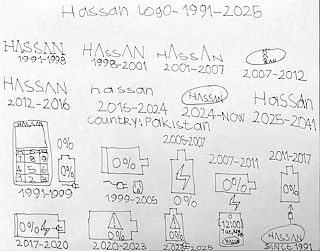 Hassan logo-1991-2025
HASSAN
1991-1998
HASSAN
1998-2001
HASSAN
2001-2007
2007-2012
HASSAN
2012-2016
hassan
2016-2024
HASSAN
2024-NOW
HASSAN
2025-2041
country: Pakistan
HASSAN
7 8 9
4 5 6
1 2 3
1991-1999
0%
0%
1999-2005
2005-2007
2007-2011
0%
12:00
2011-2017
0%
0%
2017-2020
0%
2020-2023
0%
2023-2025
HASSAN
SINCE 1991